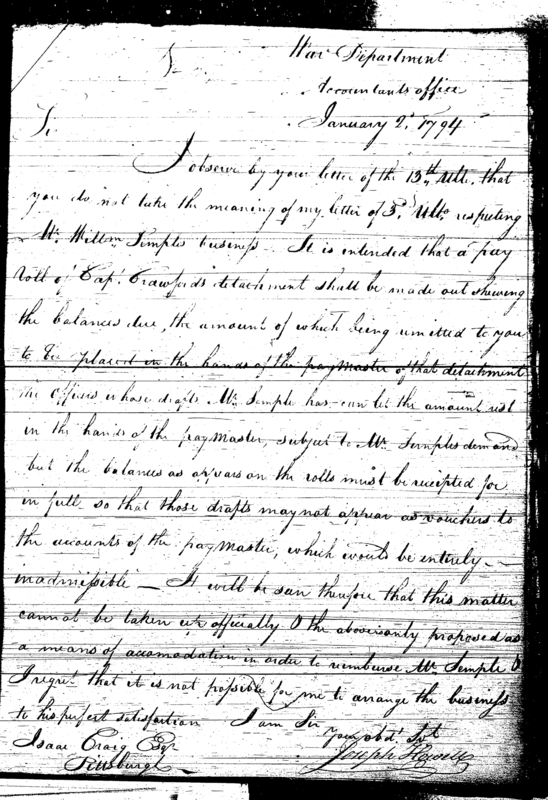 War Department
Accountants office
January 2d 1794
Sir
I observe by your letter of the 13th Ulto. that
you do not take the meaning of my letter of 5. Ulto respecting
Mr. Willm Semples business - It is intended that a pay
roll of Capt. Crawfords detachment shall be made out shewing
the balances due, the amount of which being remitted to you
to be placed in the hands of the paymaster of that detachment
the officers whose drafts Mr. Semple has can let the amount rest
in the hands of the paymaster, subject to Mr. Semples demand
but the balances as appears on the rolls must be receipted for
in full so that those drafts may not appear as vouchers to
the accounts of the paymaster, which would be entirely
inadmissible - It will be seen therefore that this matter
cannot be taken up officially & the above is only proposed as
a means of accomodation in order to reimburse Mr Semple &
I regret that it is not possible for me to arrange the business
to his perfect satisfaction I am Sir
Your obdt. Svt
Isaac Craig Esqr Joseph Howell
Pittsburgh